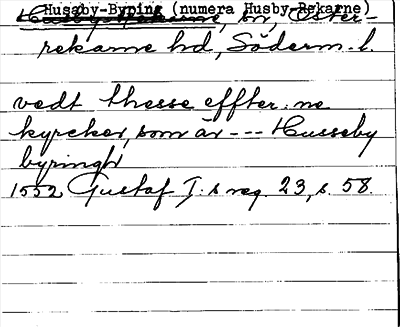 Husaby-Byping (numera Husby-Rekarne)
Husby-Rekarne, sn, Öster-
rekarne hd, Söderm. l.
vedt thesse effter:ne
kyrcker, som är --- Husseby
byringh
1552 Gustaf I:s reg. 23, s. 58.